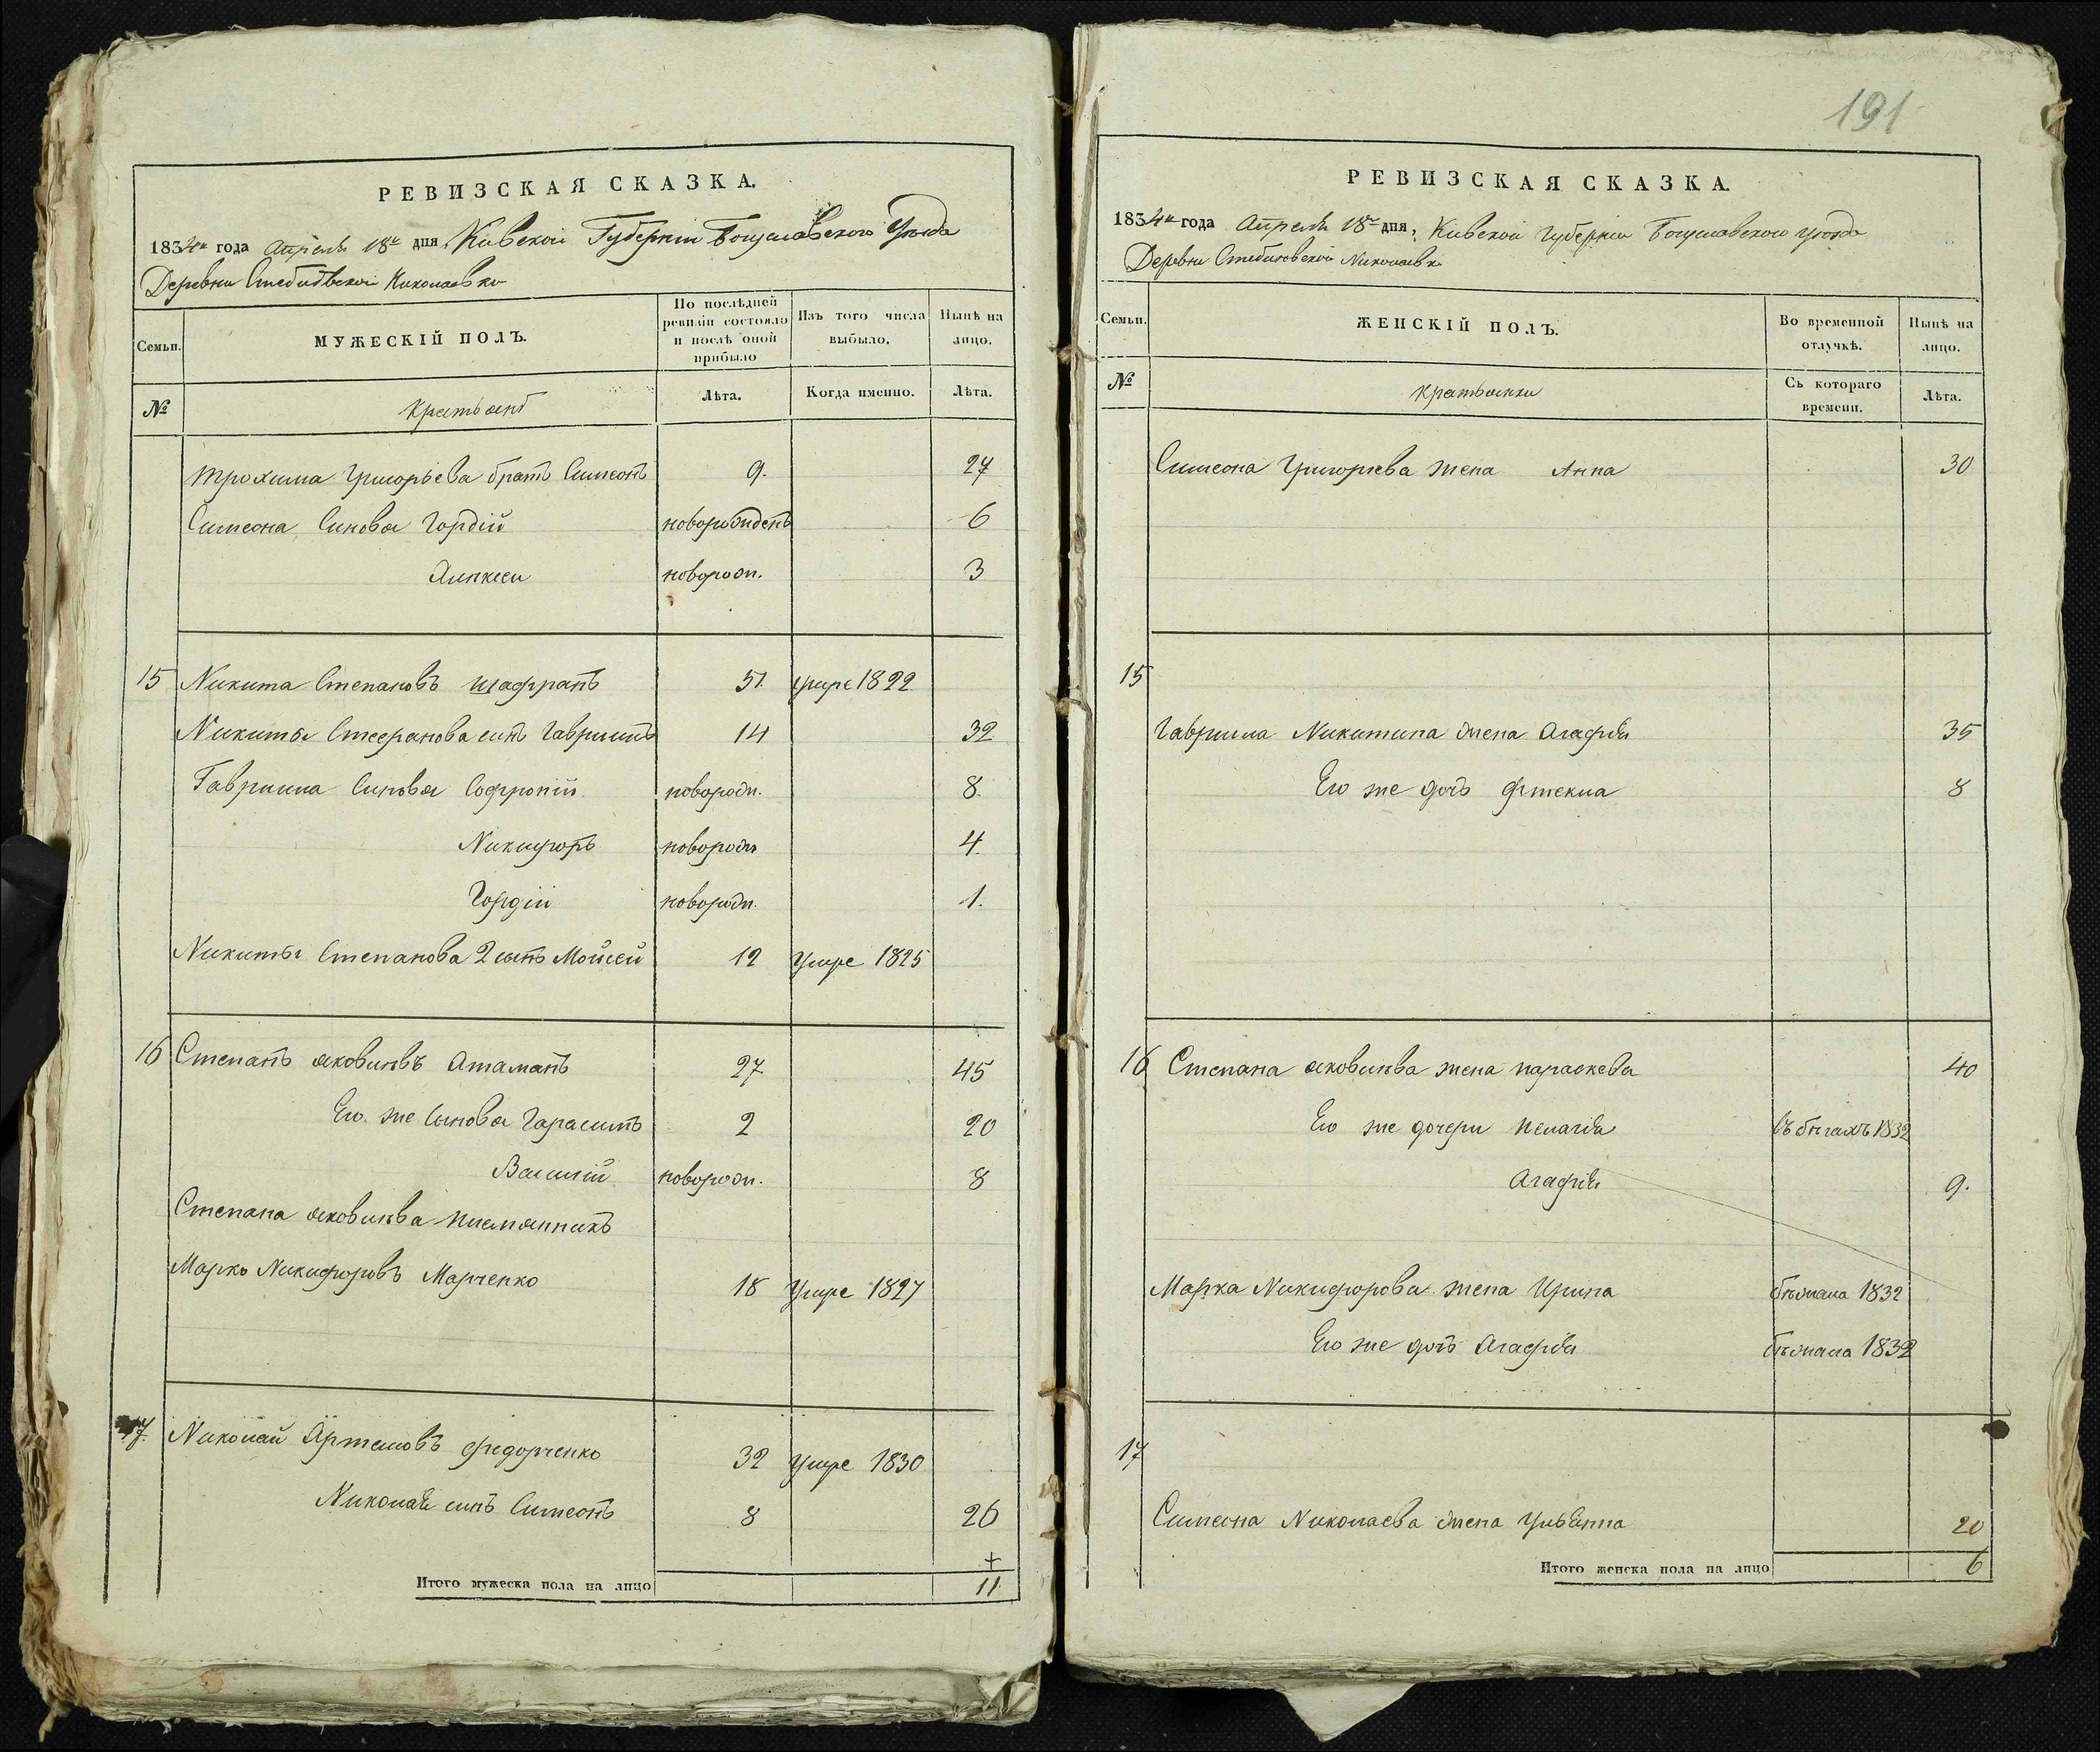 РЕВИЗСКАЯ СКАЗКА.
1834го года Апреля 18го дня, Киевской Губернии Богуславского Уезда
Деревни Стебловской Николаевки
Семьи. МУЖЕСКІЙ ПОЛЪ. По послѣдней ревизіи состояло и послѣ оной прибыло Изъ того числа выбыло. Нынѣ на лицо.
№ Крестьянъ Лѣта. Когда именно. Лѣта.
Трохима Григорьева братъ Симеонъ 9. 27
Симеона Синовья Гордій новорожденъ 6
Алексеи новорож. 3
15 Никита Степановъ Шафранъ 51. умре 1822
Никиты Стефанова синъ Гаврилъ 14 32
Гаврила Синовья Софроній новорож. 8.
Никифоръ новорож 4.
Гордій новорож. 1.
Никиты Степанова 2 сынъ Мойсей 12 умре 1825
16 Степанъ яковлевъ Атаманъ 27 45
Его же Сыновья Гарасимъ 2 20
Василій новорож. 8
Степана яковлева племянникъ
Марко Никифоровъ Марченко 18 Умре 1827
17. Николай Артемовъ Федорченко 32 умре 1830
Николая синъ Симеонъ 8 26
+
Итого мужеска пола на лицо 11
191
РЕВИЗСКАЯ СКАЗКА.
1834го года Апреля 18го дня, Киевской Губернии Богуславского уезда
Деревни Стебловской Николаевки
Семьи. ЖЕНСКІЙ ПОЛЪ. Во временной отлучкѣ. Нынѣ на лицо.
№ Крестьянки Съ котораго времени. Лѣта.
Симеона Григорьева жена Анна 30
15
Гаврила Никитина жена Агафія 35
Его же дочь Фтекла 8
16 Степана яковлева жена параскева 40
Его же дочери Пелагія въ бѣгахъ 1832
Агафія 9.
Марка Никифорова жена Ирина бѣжала 1832
Его же дочь Агафія бѣжала 1832
17
Симеона Николаева жена Ульянна 20
Итого женска пола на лицо 6